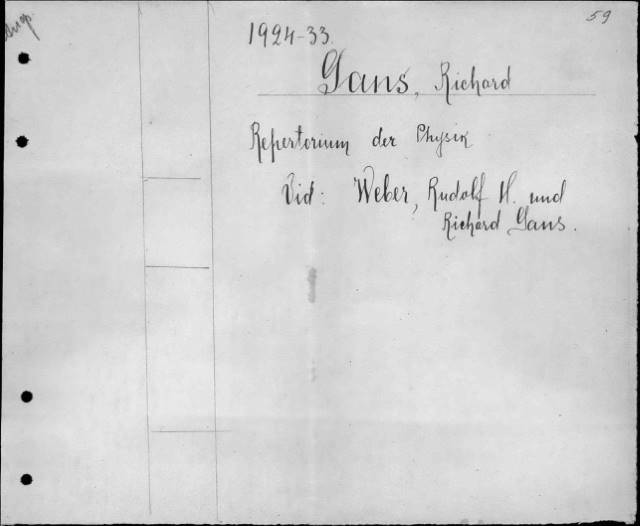 59
1924-33.
Gans, Richard
Repertorium der Physik
Vid: Weber, Rudolf H. und
Richard Gans.